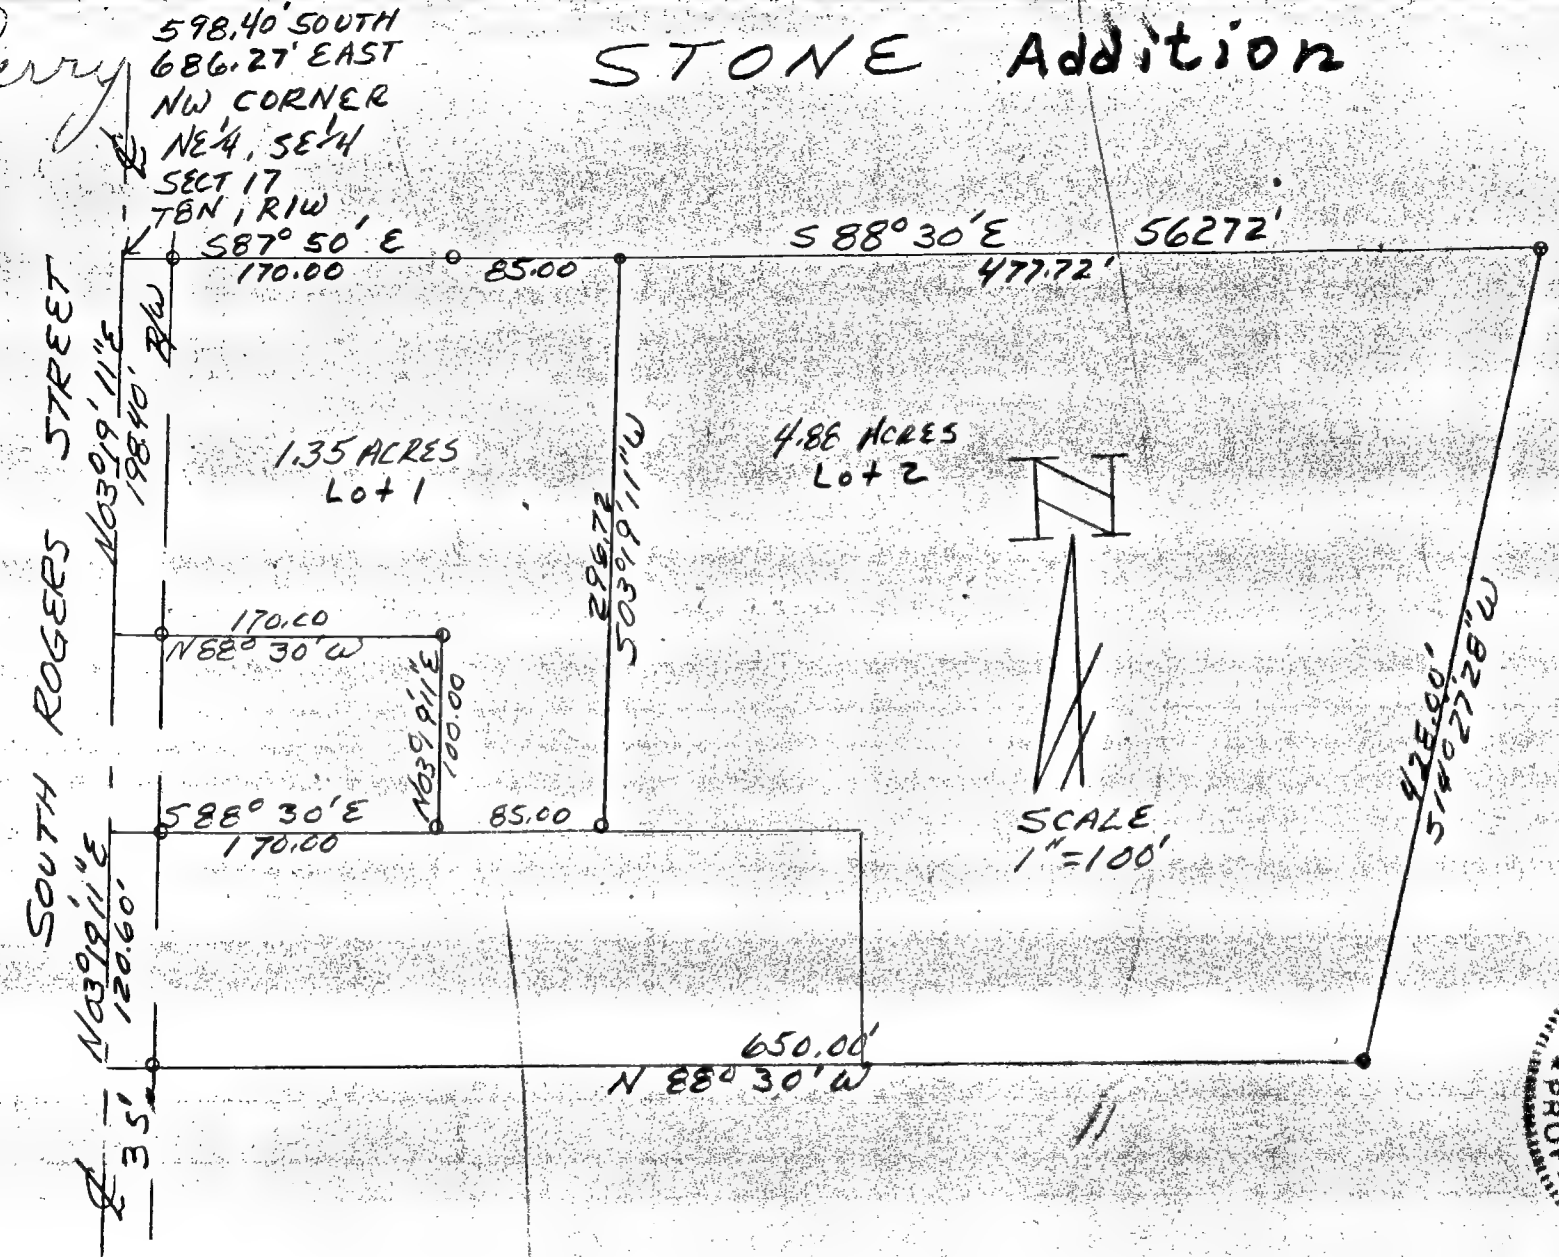 erry
598.40' SOUTH
686.27' EAST
NW CORNER
NE 1/4, SE 1/4
SECT 17
T8N, R1W
STONE Addition
S87° 50' E
170.00
85.00
S 88° 30' E 56272'
477.72'
R/W
SOUTH ROGERS STREET
N03°19'11"E
198.40'
1.35 ACRES
Lot 1
296.72
S03°19'11"W
4.88 ACRES
Lot 2
N
170.00
N88° 30' W
N03°19'11"E
100.00
S88° 30' E
170.00
85.00
SCALE
1"=100'
428.00'
S14°27'28"W
N03°19'11"E
120.60'
650.00'
N 88° 30' W
35'
PROF